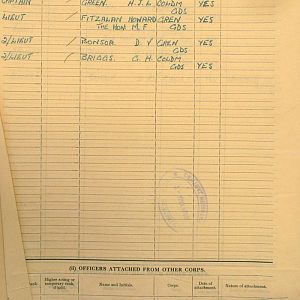 CAPTAIN / GREEN. H.J.L COLDM YES
GDS
LIEUT / FITZALAN HOWARD GREN YES
THE HON M.F GDS
2/LIEUT / BONSOR D V GREN YES
GDS
2/LIEUT / BRIGGS. G H COLDM
GDS YES
(ii) OFFICERS ATTACHED FROM OTHER CORPS.
Rank. Higher acting or temporary rank, if held. Name and Initials. Corps. Date of attachment. Nature of attachment.